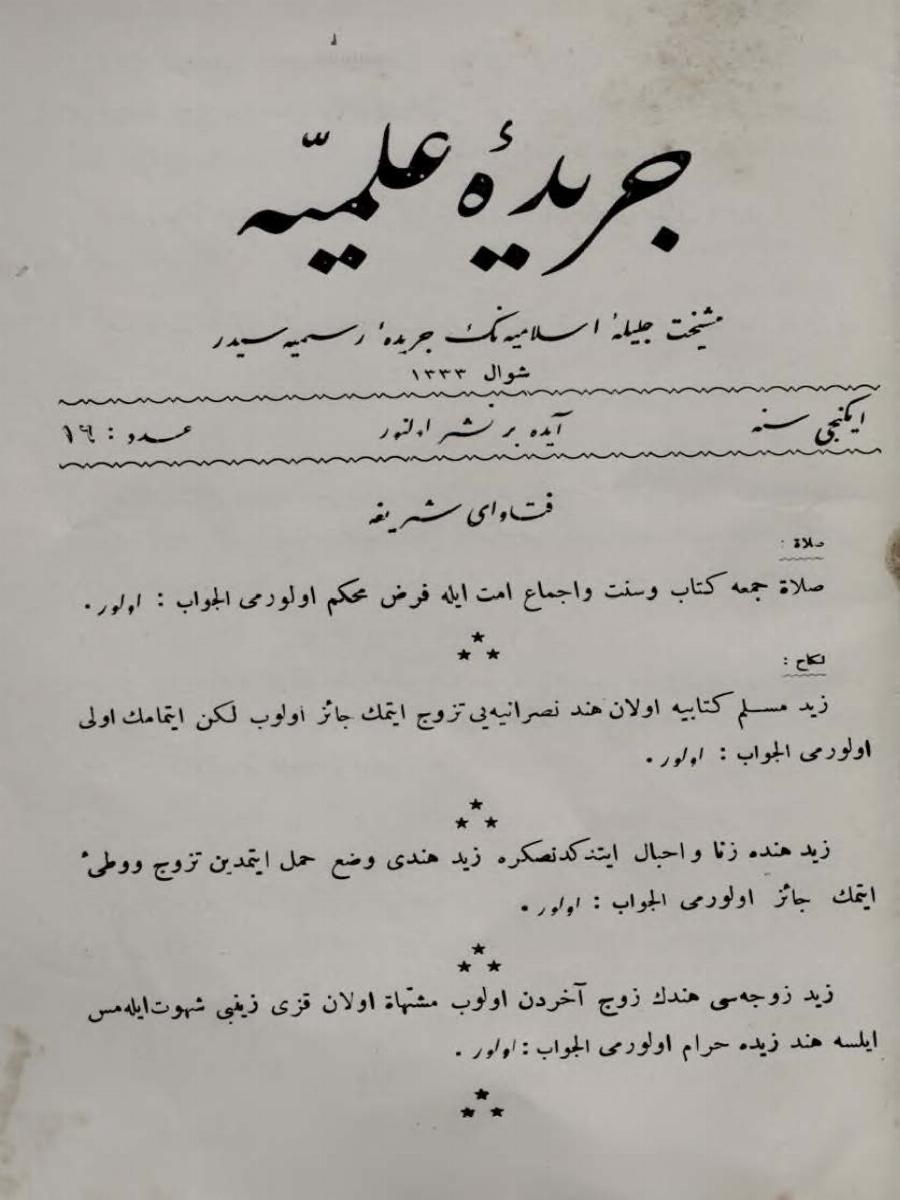 جريدۀ علميّه
مشيخت جليلۀ اسلاميه نك جريدۀ رسميه سيدر
شوال ١٣٣٣
ايكنجى سنه
آيده بر نشر اولنور
عدد : ١٦
فتاواى شريفه
صلاة :
صلاة جمعه كتاب وسنت واجماع امت ايله فرض محكم اولورمى الجواب : اولور .
نكاح :
زيد مسلم كتابيه اولان هند نصرانيه يى تزوج ايتمك جائز اولوب لكن ايتمامك اولى
اولورمى الجواب : اولور .
زيد هنده زنا و احبال ايتدكدنصكره زيد هندى وضع حمل ايتمدين تزوج ووطىٔ
ايتمك جائز اولورمى الجواب : اولور .
زيد زوجه سى هندك زوج آخردن اولوب مشتهاة اولان قزى زينبى شهوت ايله مس
ايلسه هند زيده حرام اولورمى الجواب : اولور .